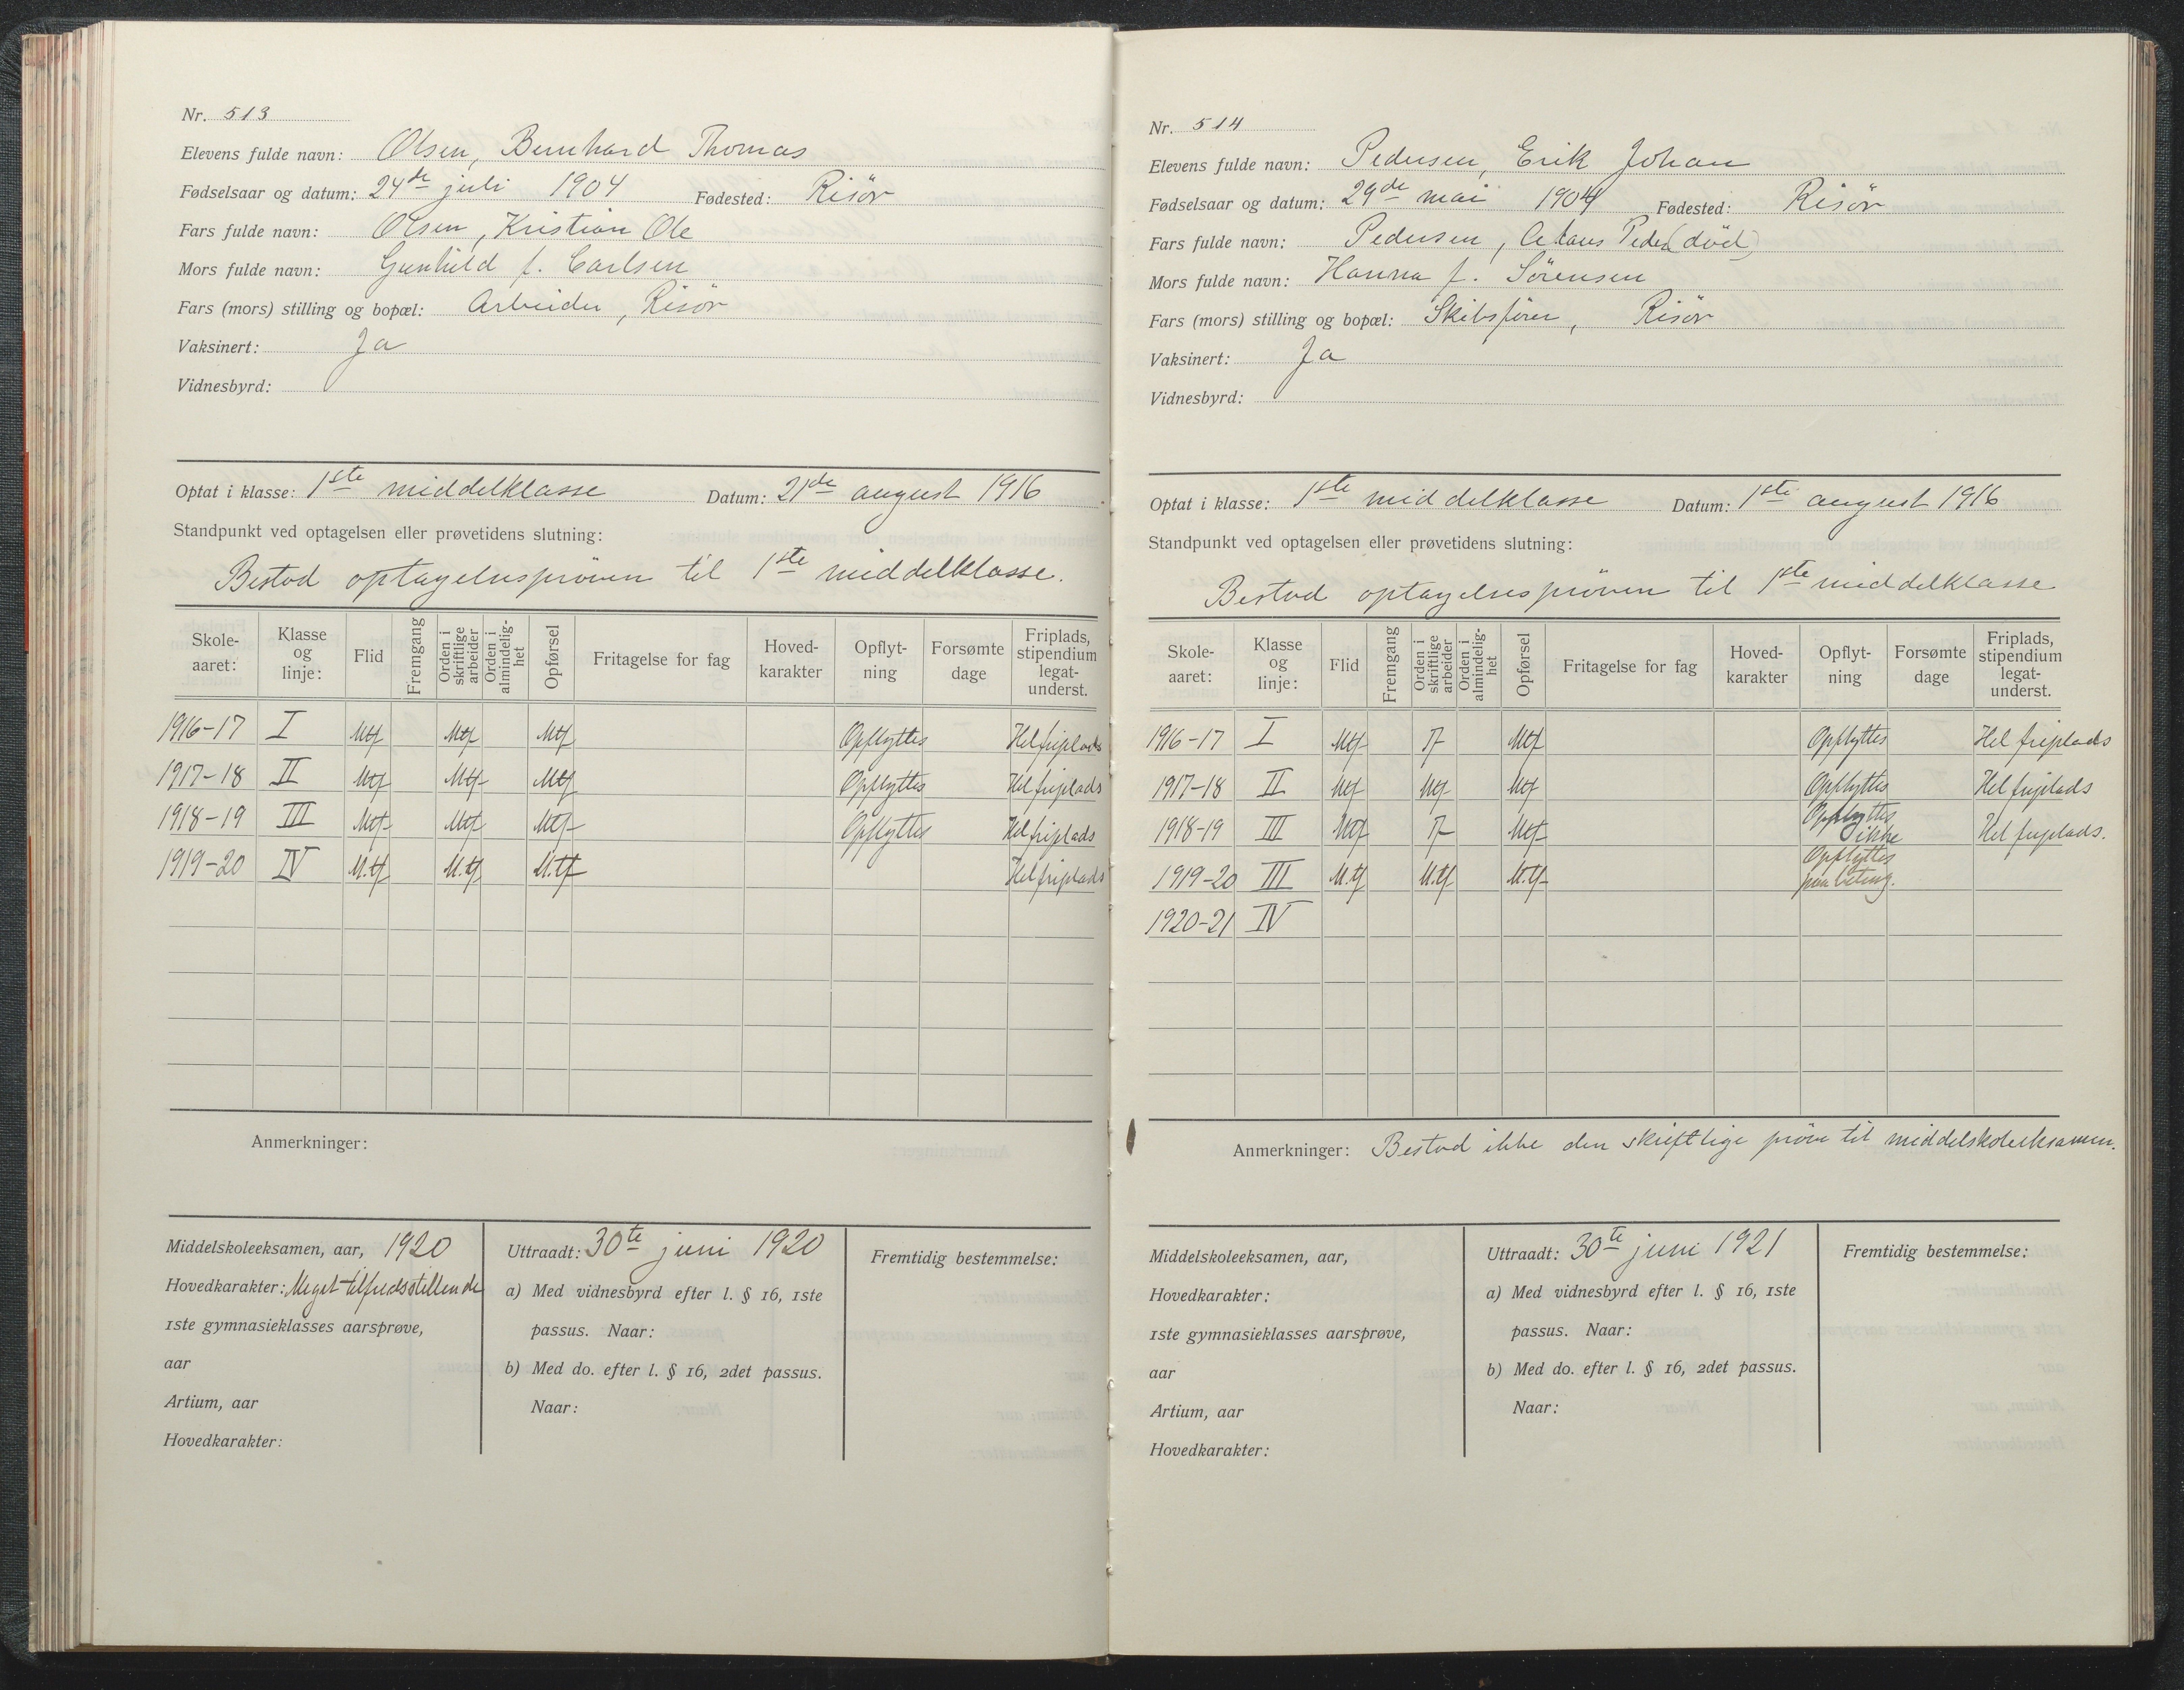 Nr. 513
Elevens fulde navn: Olsen, Bernhard Thomas
Fødselsaar og datum: 24de juli 1904 Fødested: Risör
Fars fulde navn: Olsen, Kristian Ole
Mors fulde navn: Gunhild f. Carlsen
Fars (mors) stilling og bopæl: Arbeider, Risör
Vaksinert: Ja
Vidnesbyrd:
Optat i klasse: 1ste middelklasse Datum: 21de august 1916
Standpunkt ved optagelsen eller prøvetidens slutning:
Bestod optagelsespröven til 1ste middelklasse.
Skole-aaret: Klasse og linje: Flid Fremgang Orden i skriftlige arbeider Orden i almindelig-het Opførsel Fritagelse for fag Hoved-karakter Opflyt-ning Forsømte dage Friplads, stipendium legat-underst.
1916-17 I Mtf Mtf Mtf Opflyttes Hel friplads
1917-18 II Mtf Mtf Mtf Opflyttes Hel friplads
1918-19 III Mtf Mtf Mtf Opflyttes Hel friplads
1919-20 IV M.tf M.tf M.tf Hel friplads
Anmerkninger:
Middelskoleeksamen, aar, 1920
Hovedkarakter: Meget tilfredsstillende
1ste gymnasieklasses aarsprøve,
aar
Artium, aar
Hovedkarakter:
Uttraadt: 30te juni 1920
a) Med vidnesbyrd efter l. § 16, 1ste
passus. Naar:
b) Med do. efter l. § 16, 2det passus.
Naar:
Fremtidig bestemmelse:
Nr. 514
Elevens fulde navn: Pedersen, Erik Johan
Fødselsaar og datum: 29de mai 1904 Fødested: Risör
Fars fulde navn: Pedersen, Peder (död)
Mors fulde navn: Hanna f. Sörensen
Fars (mors) stilling og bopæl: Skibsförer, Risör
Vaksinert: Ja
Vidnesbyrd:
Optat i klasse: 1ste middelklasse Datum: 1ste august 1916
Standpunkt ved optagelsen eller prøvetidens slutning:
Bestod optagelsespröven til 1ste middelklasse
Skole-aaret: Klasse og linje: Flid Fremgang Orden i skriftlige arbeider Orden i almindelig-het Opførsel Fritagelse for fag Hoved-karakter Opflyt-ning Forsømte dage Friplads, stipendium legat-underst.
1916-17 I Mtf Tf Mtf Opflyttes Hel friplads
1917-18 II Mtf Mtf Mtf Opflyttes Hel friplads
1918-19 III Mtf Tf Mtf Opflyttes ikke Hel friplads.
1919-20 III M.tf M.tf M.tf Opflyttes paa beting.
1920-21 IV
Anmerkninger: Bestod ikke den skriftlige pröve til middelskoleeksamen.
Middelskoleeksamen, aar,
Hovedkarakter:
1ste gymnasieklasses aarsprøve,
aar
Artium, aar
Hovedkarakter:
Uttraadt: 30te juni 1921
a) Med vidnesbyrd efter l. § 16, 1ste
passus. Naar:
b) Med do. efter l. § 16, 2det passus.
Naar:
Fremtidig bestemmelse: